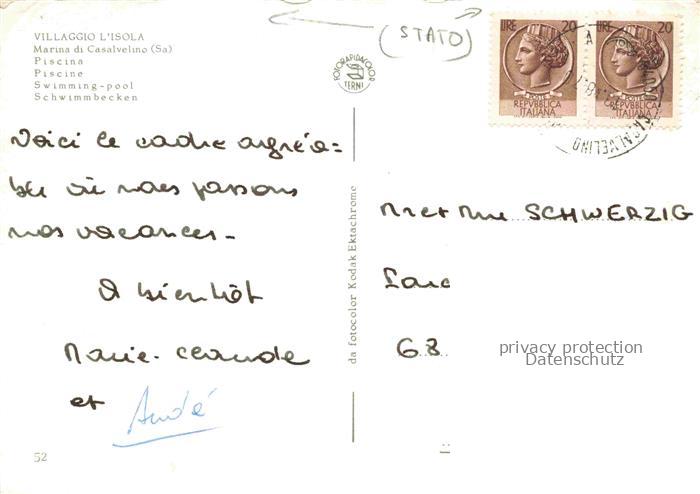 VILLAGGIO L'ISOLA
Marina di Casalvelino (Sa)
Piscina
Piscine
Swimming-pool
Schwimmbecken
(STATO)
FOTORAPIDACOLOR
TERNI
LIRE 20
POSTE
REPVBBLICA
ITALIANA
LIRE 20
POSTE
REPVBBLICA
ITALIANA
CASALVELINO
Voici le cadre agréa=
ble où nous passons
nos vacances-
A bientôt
Marie-Claude
et André
da fotocolor Kodak Ektachrome
M et Me SCHWERZIG
68
privacy protection
Datenschutz
52